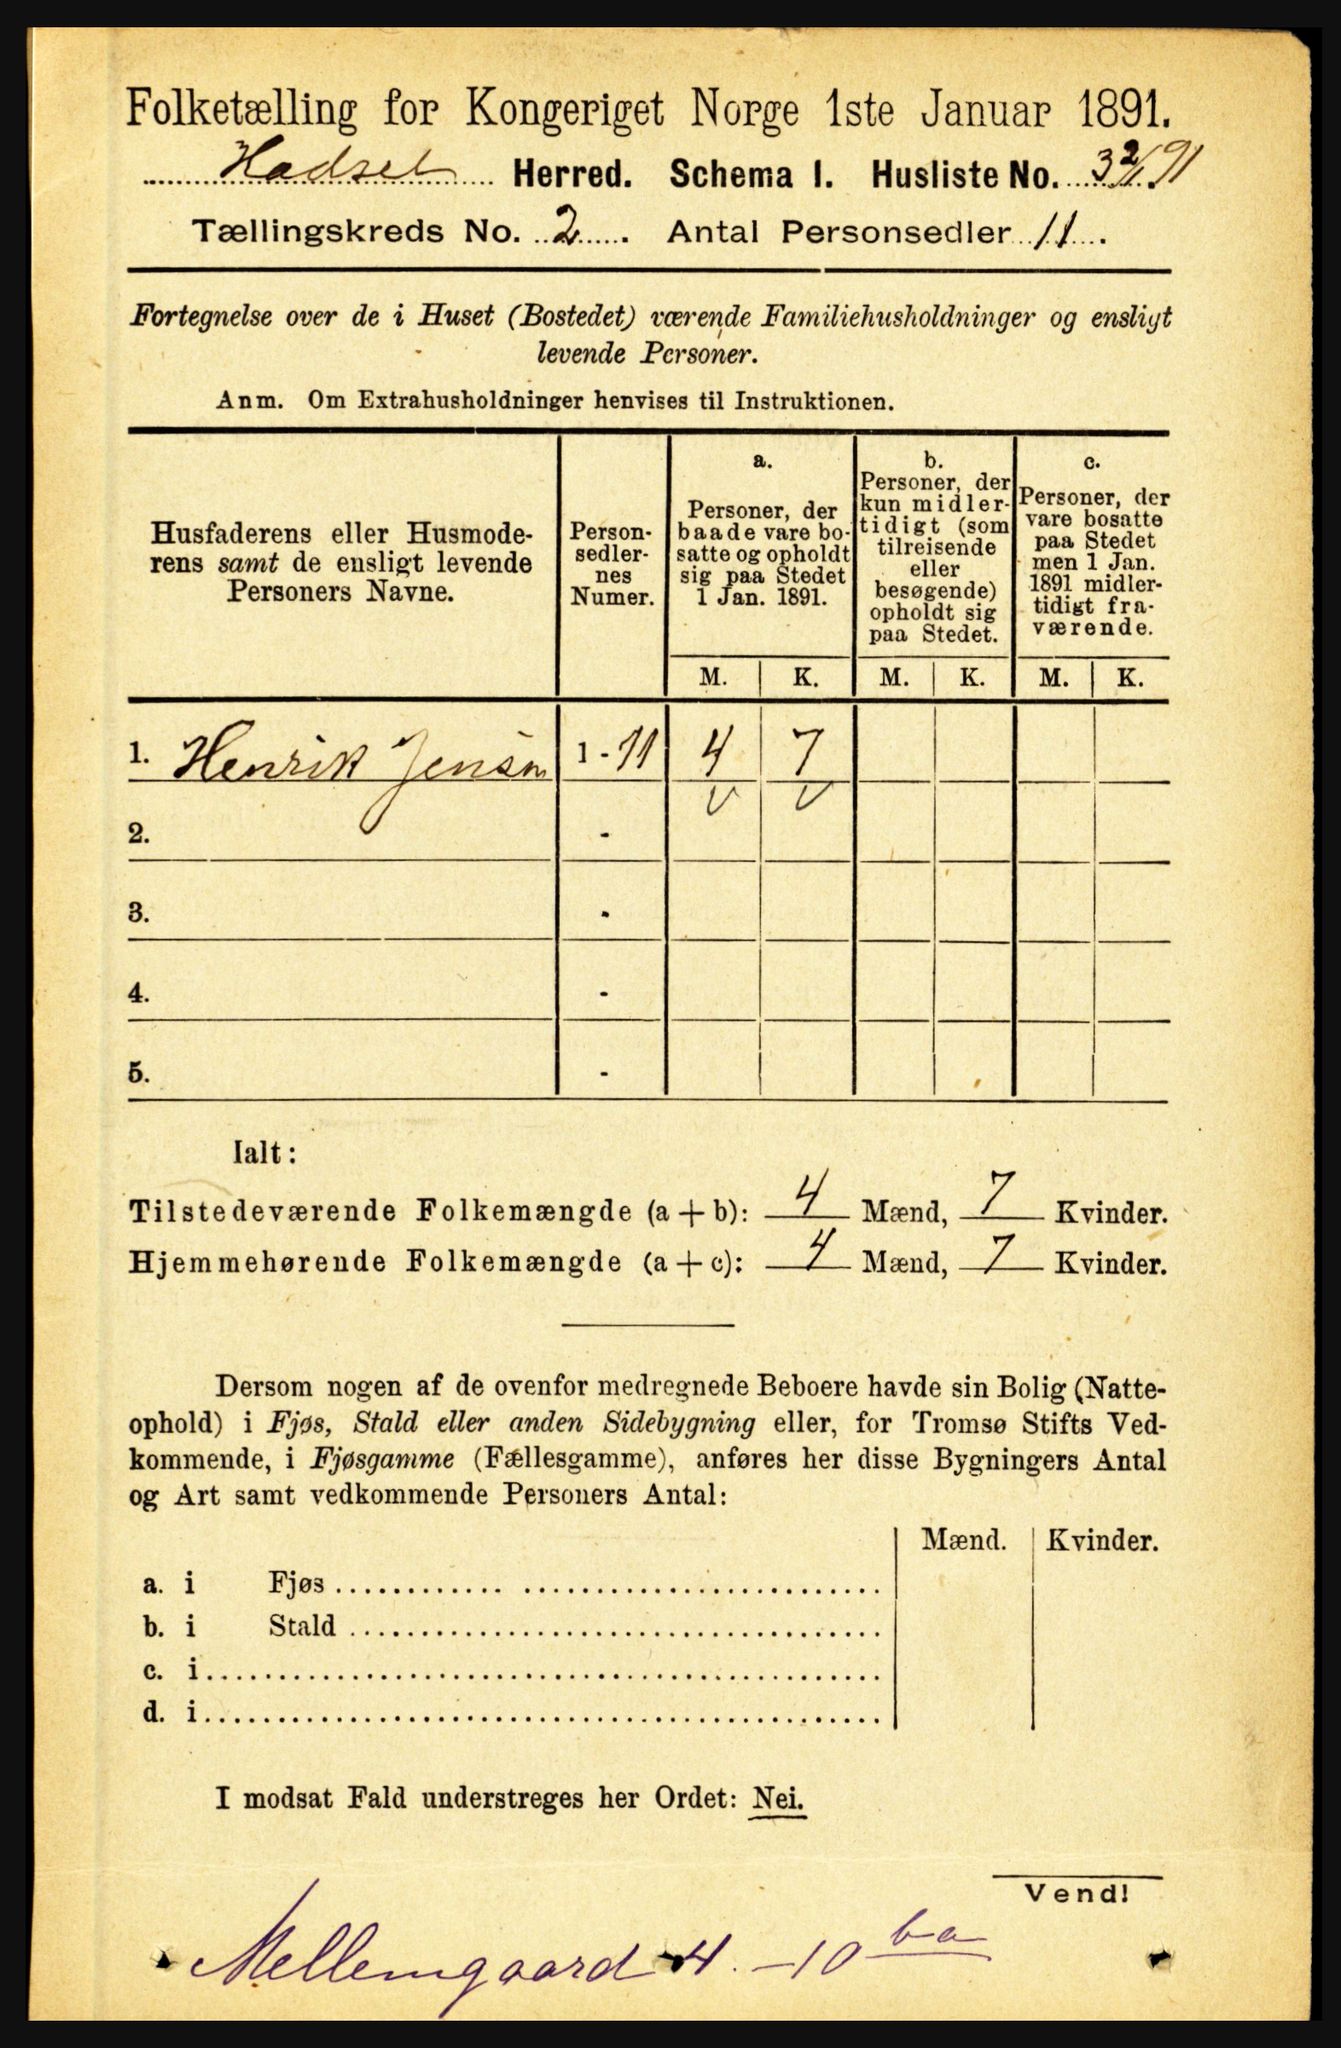 Folketælling for Kongeriget Norge 1ste Januar 1891.
Hadsel Herred. Schema I. Husliste No. 3 2/1 91
Tællingskreds No. 2. Antal Personsedler 11.
Fortegnelse over de i Huset (Bostedet) værende Familiehusholdninger og ensligt
levende Personer.
Anm. Om Extrahusholdninger henvises til Instruktionen.
Husfaderens eller Husmode-
rens samt de ensligt levende
Personers Navne.
Person-
sedler-
nes
Numer.
a.
Personer, der
baade vare bo-
satte og opholdt
sig paa Stedet
1 Jan. 1891.
b.
Personer, der
kun midler-
tidigt (som
tilreisende
eller
besøgende)
opholdt sig
paa Stedet.
c.
Personer, der
vare bosatte
paa Stedet
men 1 Jan.
1891 midler-
tidigt fra-
værende.
M. K. M. K. M. K.
1. Henrik Jensen 1 - 11 4 7
2. -
3. -
4. -
5. -
Ialt:
Tilstedeværende Folkemængde (a + b): 4 Mænd, 7 Kvinder.
Hjemmehørende Folkemængde (a + c): 4 Mænd, 7 Kvinder.
Dersom nogen af de ovenfor medregnede Beboere havde sin Bolig (Natte-
ophold) i Fjøs, Stald eller anden Sidebygning eller, for Tromsø Stifts Ved-
kommende, i Fjøsgamme (Fællesgamme), anføres her disse Bygningers Antal
og Art samt vedkommende Personers Antal:
Mænd. Kvinder.
a. i Fjøs
b. i Stald
c. i
d. i
I modsat Fald understreges her Ordet: Nei.
Vend!
Mellemgaard 4. - 10 ba